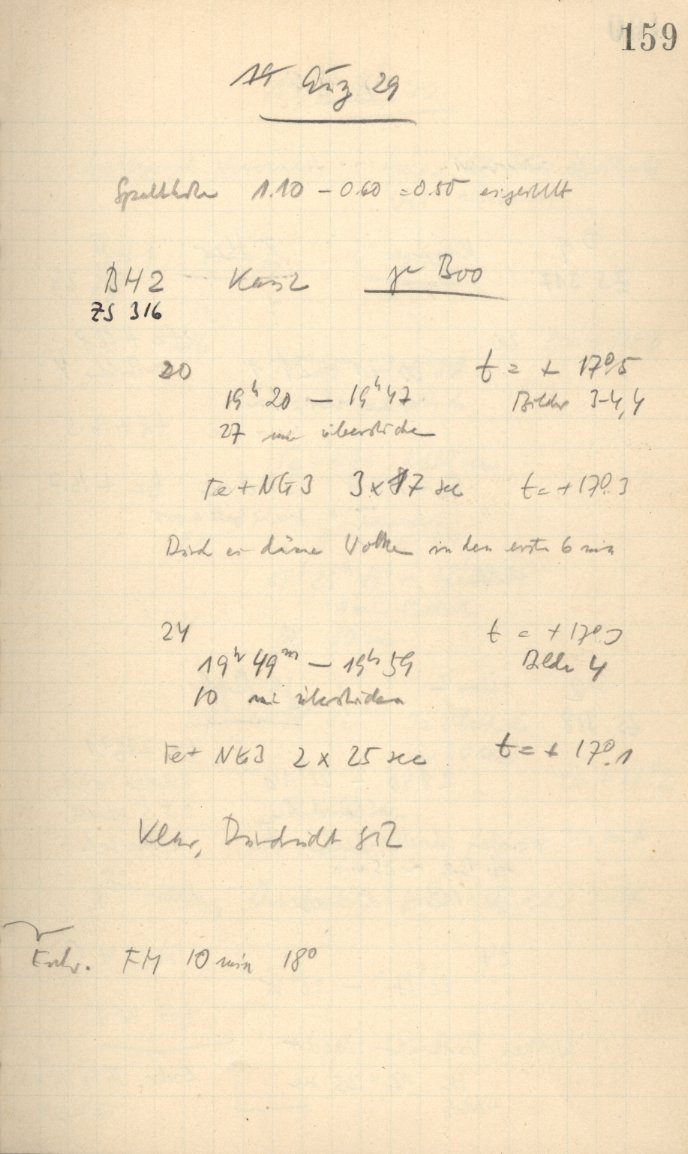 159
Aug 29
Spalthöhe 1.10 – 0.60 = 0.50 eingestellt
BH2
Boo
ZS 316
20 t = + 17°.5
19ʰ 20 — 19ʰ 47 Bilder 3-4, 4
27 min überstrichen
Fe + NG3 3 x 17 sec t = + 17°.3
dünne Wolken in den ersten 6 min
24
19ʰ 49ᵐ — 19ʰ 59 Bilder 4
10 min überstrichen
Fe + NG3 2 x 25 sec t = + 17°.1
Klar, Durchsicht
Entw. FM 10 min 18°